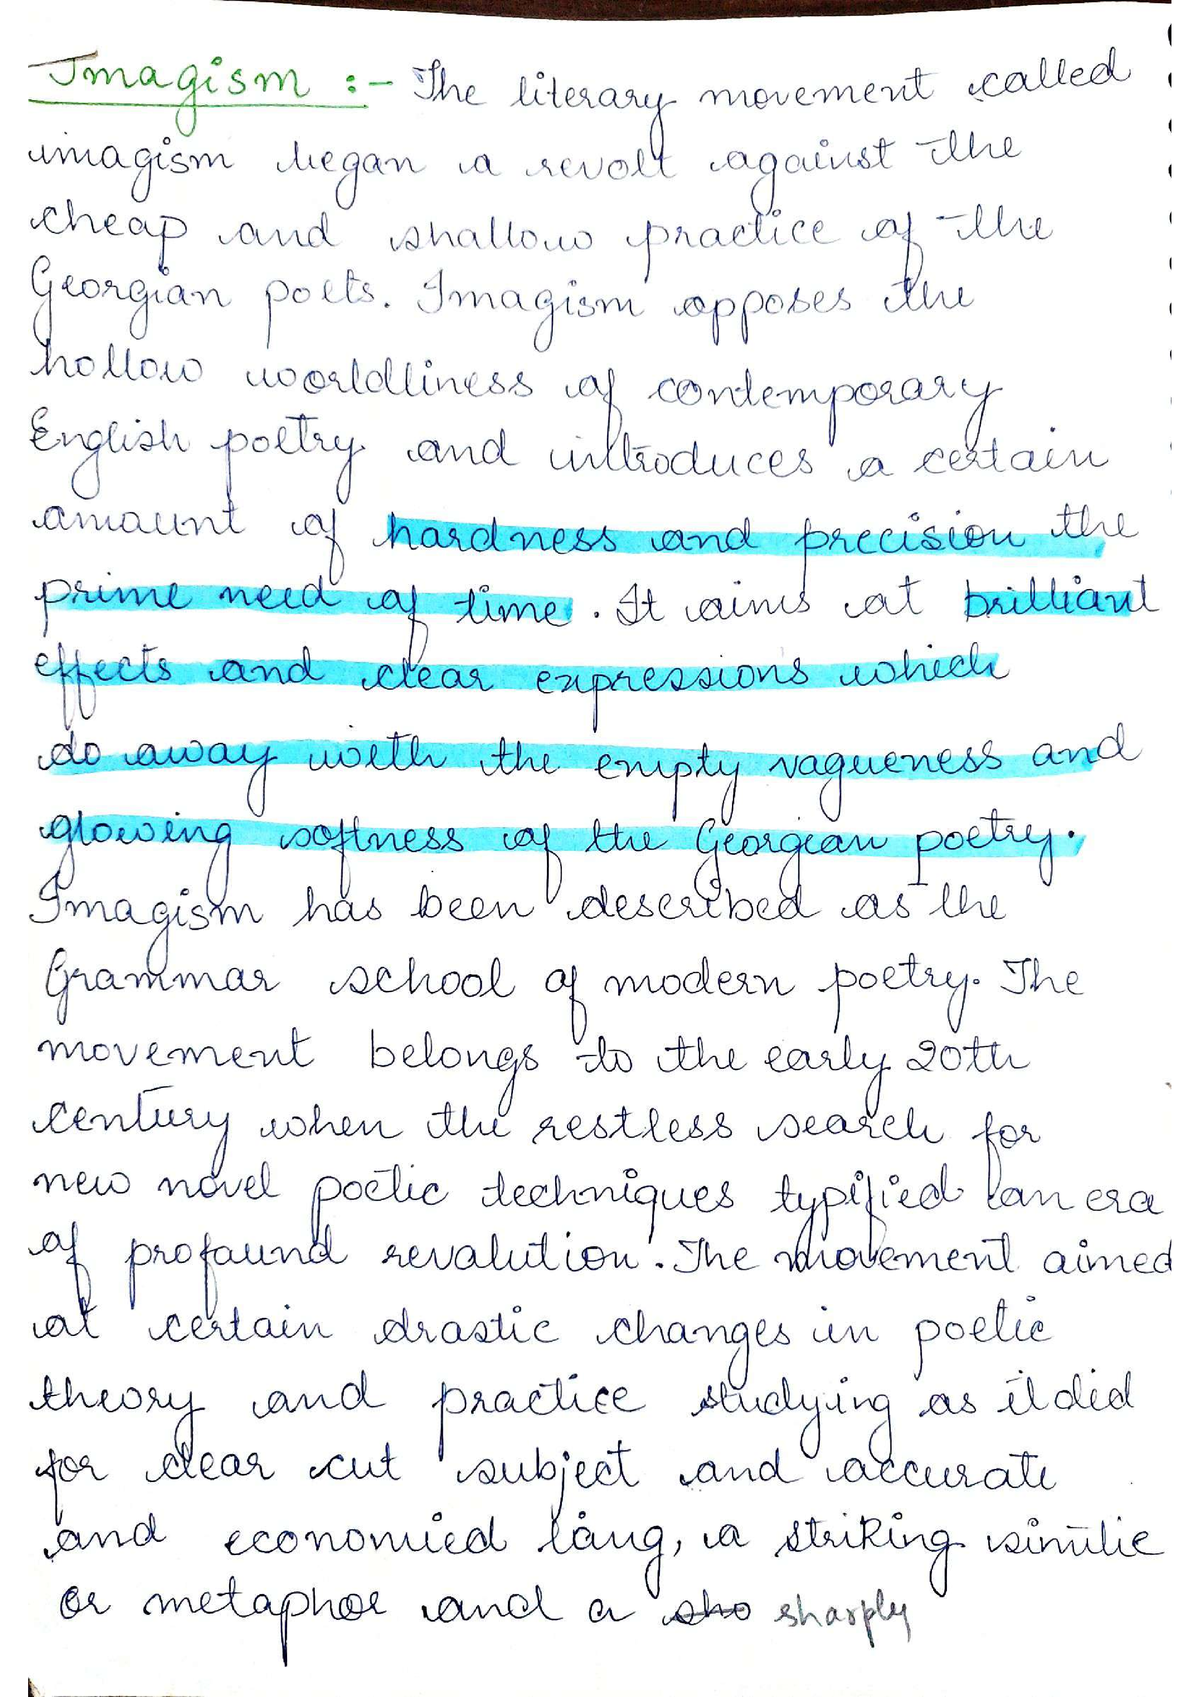 Imagism :- The literary movement called
imagism began a revolt against the
cheap and shallow practice of the
Georgian poets. Imagism opposes the
hollow worldliness of contemporary
English poetry and introduces a certain
amount of hardness and precision the
prime need of time. It aims at brilliant
effects and clear expressions which
do away with the empty vagueness and
glowing softness of the Georgian poetry.
Imagism has been described as the
Grammar school of modern poetry. The
movement belongs to the early 20th
century when the restless search for
new novel poetic techniques typified an era
of profound revalution. The movement aimed
at certain drastic changes in poetic
theory and practice studying as it did
for clear cut subject and accurate
and economied lang, a striking similie
or metaphor and a sho sharply